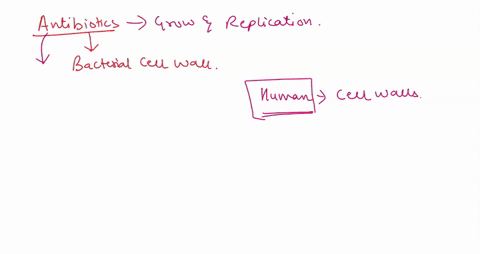 Antibiotics → Grow & Replication.
Bacterial Cell Wall.
Human → Cell Walls.